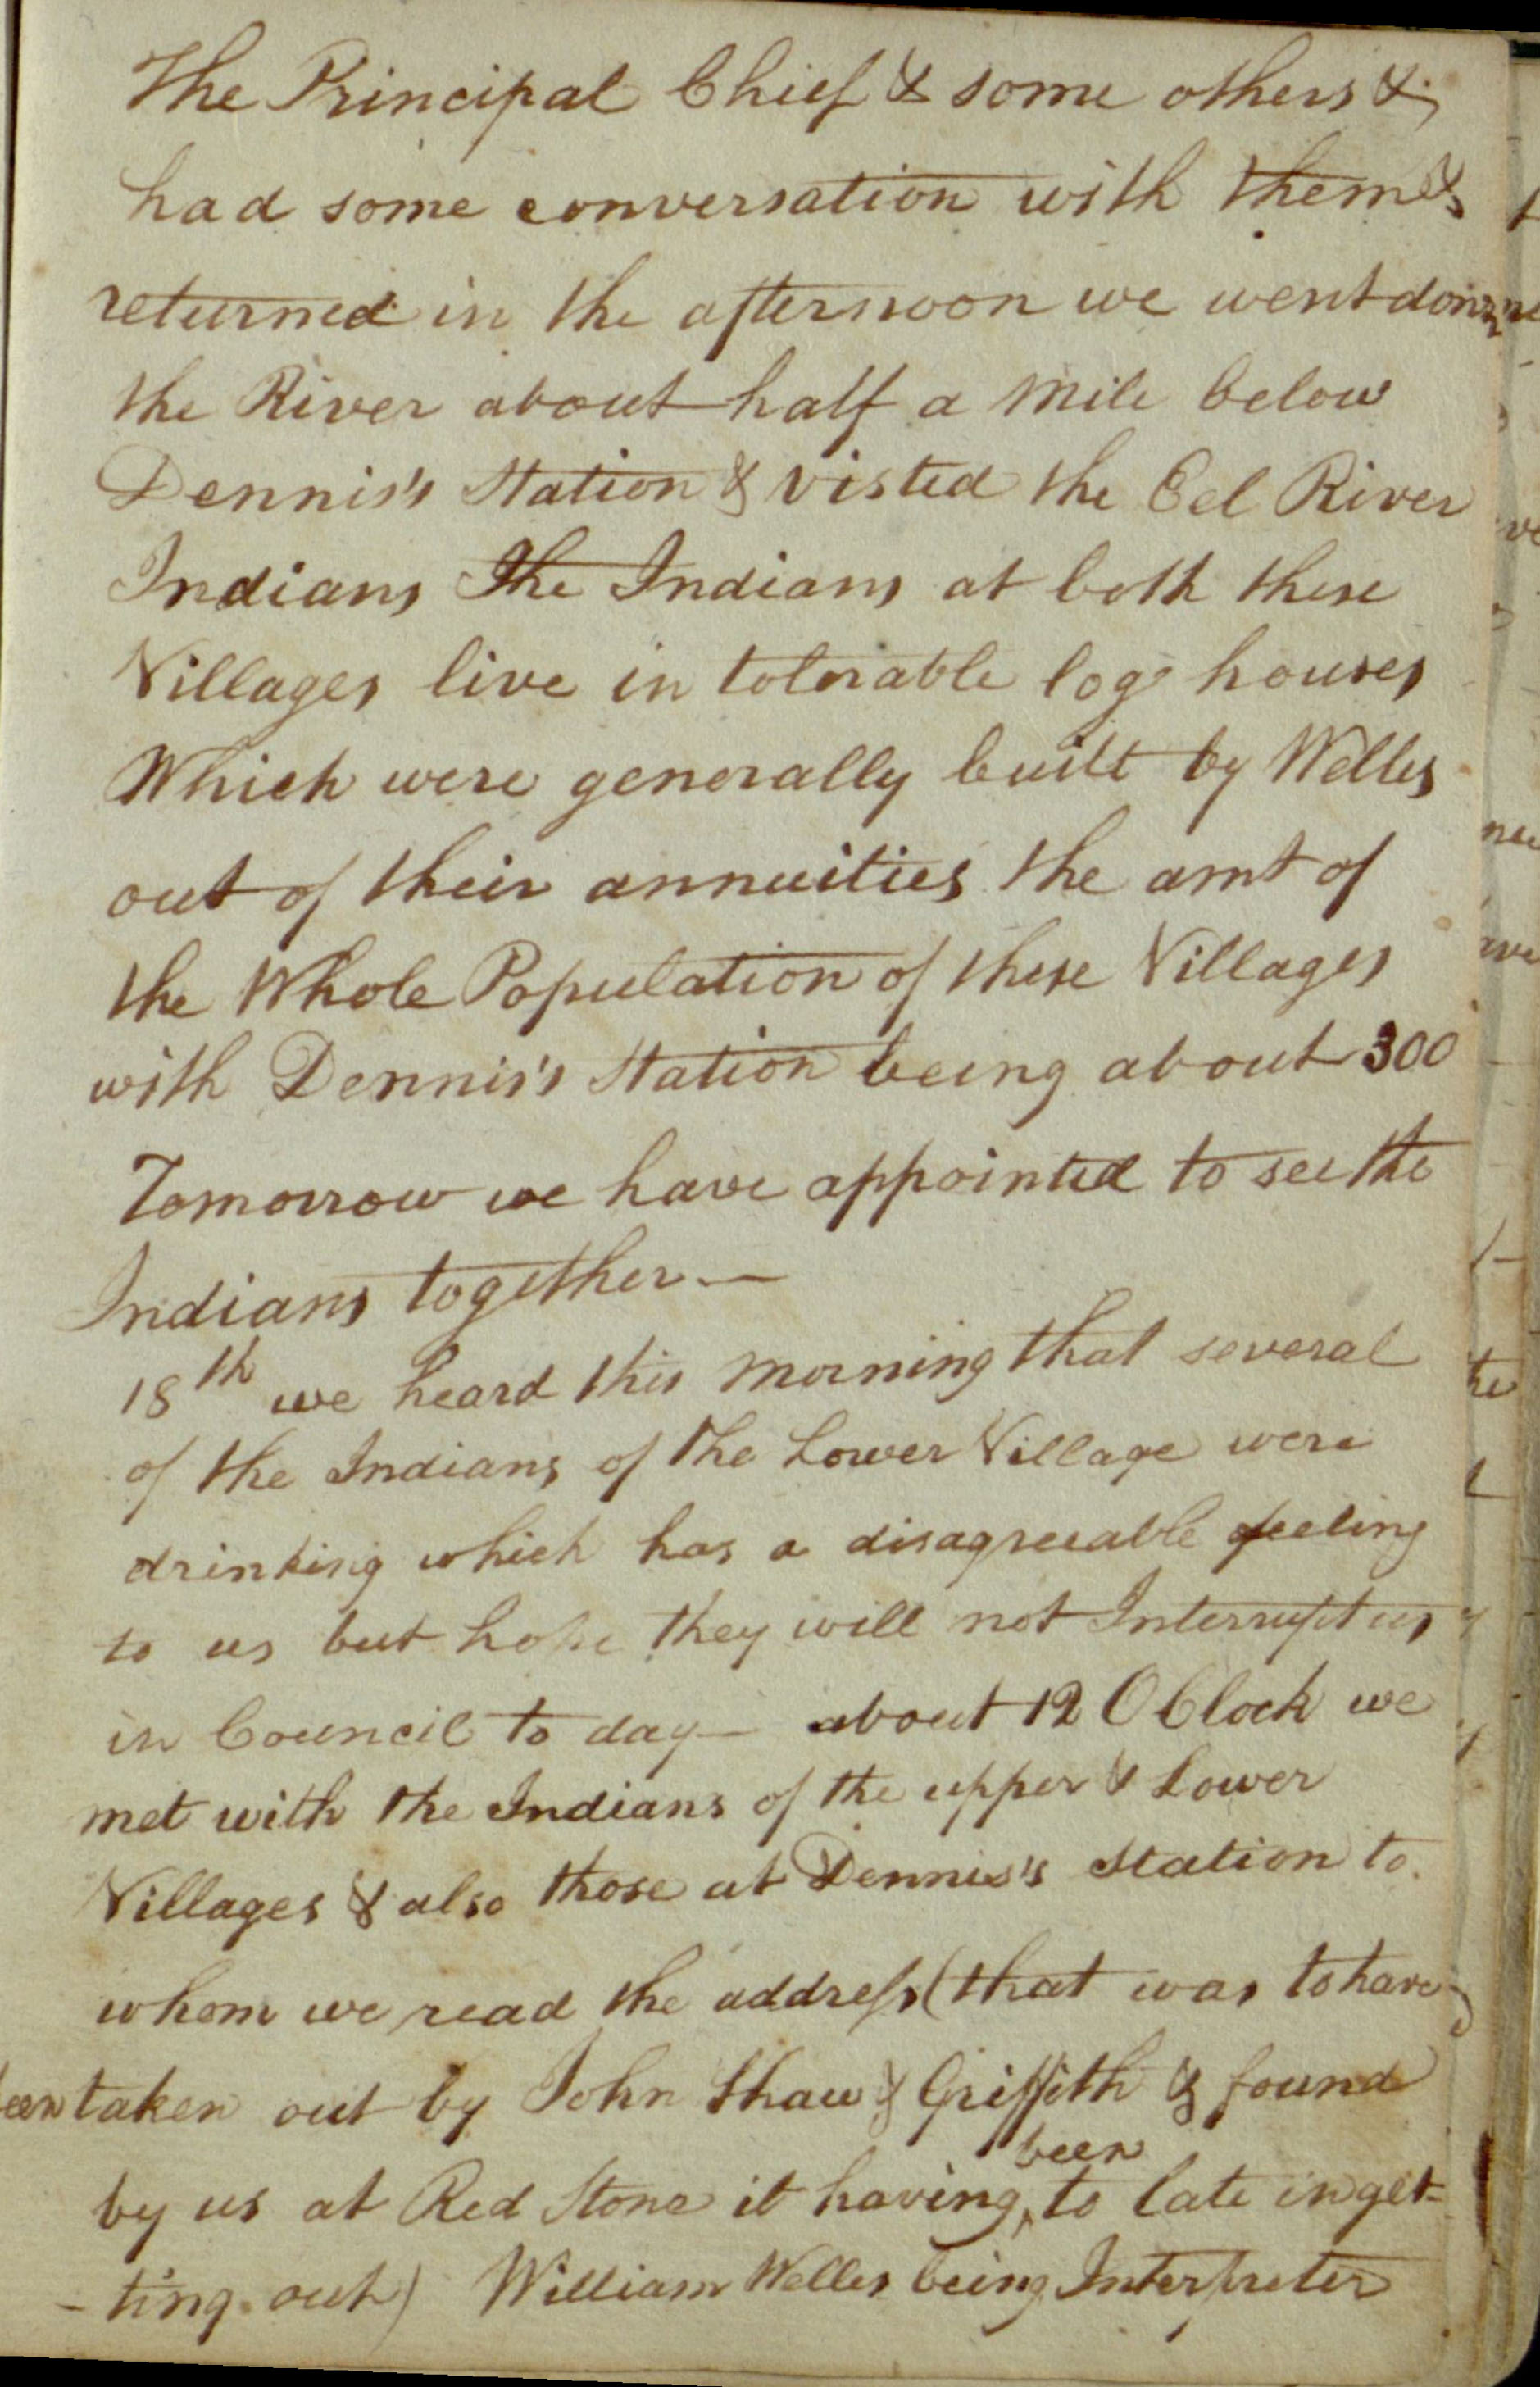 The Principal Chief & some others &
had some conversation with them &
returned in the afternoon we went down
the River about half a mile below
Dennis's Station & visted the Eel River
Indians The Indians at both these
Villages live in tolerable log houses
Which were generally built by Welles
out of their annuities the amt of
the Whole Population of these Villages
with Dennis's Station being about 300
Tomorrow we have appointed to see the
Indians together —
18th we heard this morning that several
of the Indians of the Lower Village were
drinking which has a disagreeable feeling
to us but hope they will not Interrupt us
in Council to day — about 12 O Clock we
met with the Indians of the upper & Lower
Villages & also those at Dennis's Station to
whom we read the address (that was to have
been taken out by John Shaw & Griffith & found
by us at Red Stone it having been to late in get-
-ting out) William Welles being Interpreter